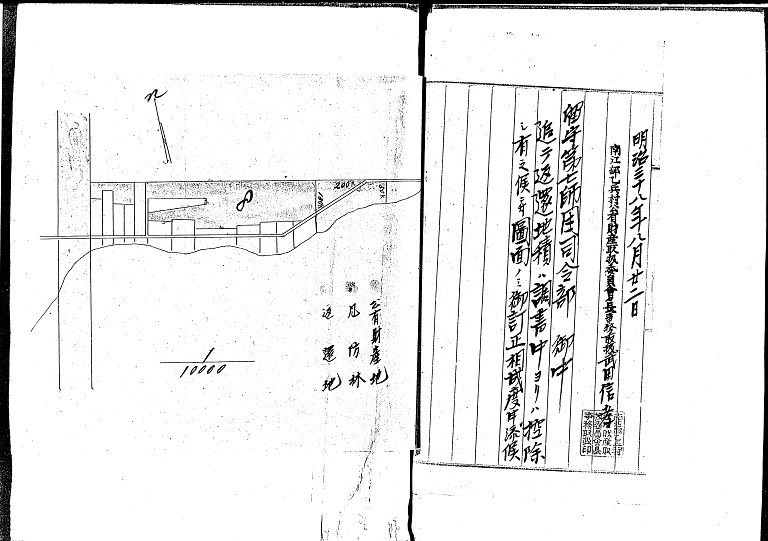 明治三十八年八月廿二日
南江部乙兵村公有財産取扱委員會長事務取扱武田信
留守第七師団司令部 御中
追テ返還地積ハ調書中ヨリハ控除
シ有之候ニ付圖面ノミ御訂正相成度申添候
N
200K
公有財産地
風防林
返還地
1
10000